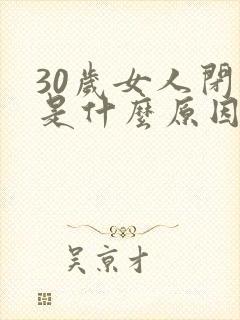 30歲女人閉
是什麼原因
吳京才